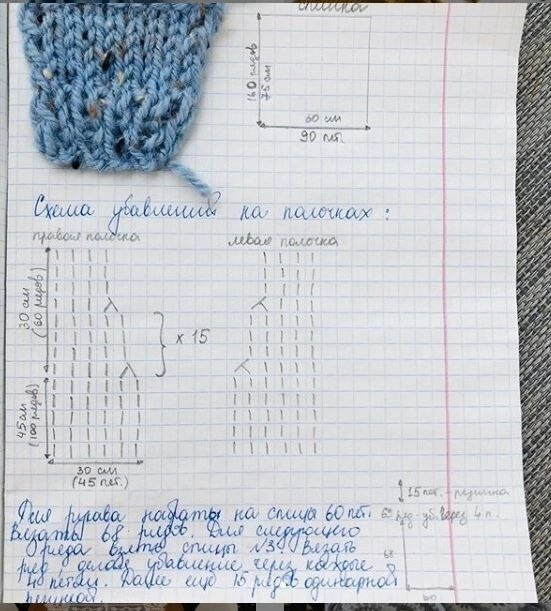 спинка
160 рядов
75 см
60 см
90 пет.
Схема убавлений на полочках:
правая полочка
левая полочка
30 см
(60 рядов)
x 15
45 см
(100 рядов)
30 см
(45 пет.)
15 пет. - резинка
68 ряд - уб. через 4 п.
68
60
Для рукава набрать на спицы 60 пет.
Вязать 68 рядов. Для следующего
ряда взять спицы №3. Вязать
ряд делая убавление через каждые
4 петли. Далее еще 15 рядов одинарной
резинкой.